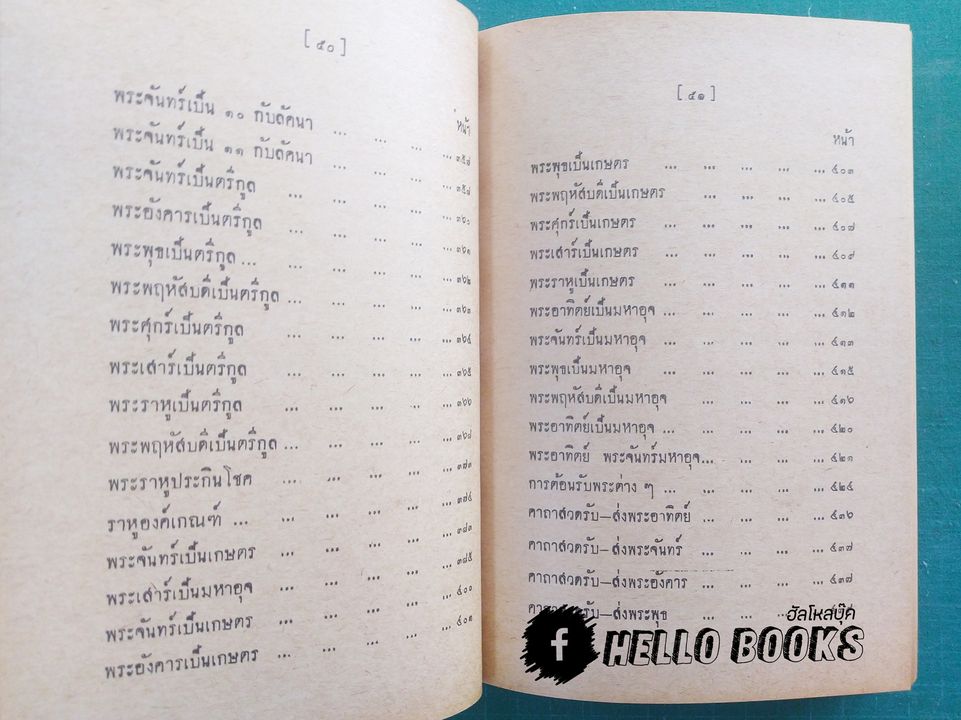 [ ๕๐ ]
หน้า
พระจันทร์เป็น ๑๐ กับลัคนา ... ... ... ๓๕๗
พระจันทร์เป็น ๑๑ กับลัคนา ... ... ... ๓๕๘
พระจันทร์เป็นตรีกูล ... ... ... ... ๓๖๐
พระอังคารเป็นตรีกูล ... ... ... ... ๓๖๑
พระพุธเป็นตรีกูล ... ... ... ... ... ๓๖๒
พระพฤหัสบดีเป็นตรีกูล ... ... ... ... ๓๖๓
พระศุกร์เป็นตรีกูล ... ... ... ... ๓๖๔
พระเสาร์เป็นตรีกูล ... ... ... ... ๓๖๕
พระราหูเป็นตรีกูล ... ... ... ... ๓๖๖
พระพฤหัสบดีเป็นตรีกูล ... ... ... ... ๓๖๘
พระราหูประกินโชค ... ... ... ... ๓๗๓
ราหูองค์เกณฑ์ ... ... ... ... ... ๓๗๔
พระจันทร์เป็นเกษตร ... ... ... ... ๓๘๓
พระเสาร์เป็นมหาอุจ ... ... ... ... ๓๘๕
พระจันทร์เป็นเกษตร ... ... ... ... ๔๐๐
พระอังคารเป็นเกษตร ... ... ... ... ๔๐๑
[ ๕๑ ]
หน้า
พระพุธเป็นเกษตร ... ... ... ... ๔๐๓
พระพฤหัสบดีเป็นเกษตร ... ... ... ... ๔๐๕
พระศุกร์เป็นเกษตร ... ... ... ... ๔๐๗
พระเสาร์เป็นเกษตร ... ... ... ... ๔๐๙
พระราหูเป็นเกษตร ... ... ... ... ๔๑๑
พระอาทิตย์เป็นมหาอุจ ... ... ... ... ๔๑๒
พระจันทร์เป็นมหาอุจ ... ... ... ... ๔๑๓
พระพุธเป็นมหาอุจ ... ... ... ... ๔๑๕
พระพฤหัสบดีเป็นมหาอุจ ... ... ... ... ๔๑๖
พระอาทิตย์เป็นมหาอุจ ... ... ... ... ๔๒๐
พระอาทิตย์ พระจันทร์มหาอุจ... ... ... ... ๔๒๑
การต้อนรับพระต่าง ๆ ... ... ... ... ... ๔๒๔
คาถาสวดรับ—ส่งพระอาทิตย์ ... ... ... ... ๔๓๖
คาถาสวดรับ—ส่งพระจันทร์ ... ... ... ... ๔๓๗
คาถาสวดรับ—ส่งพระอังคาร ... ... ... ... ๔๓๗
คาถาสวดรับ—ส่งพระพุธ ... ... ...
ฮัลโหลบุ๊ค
f HELLO BOOKS